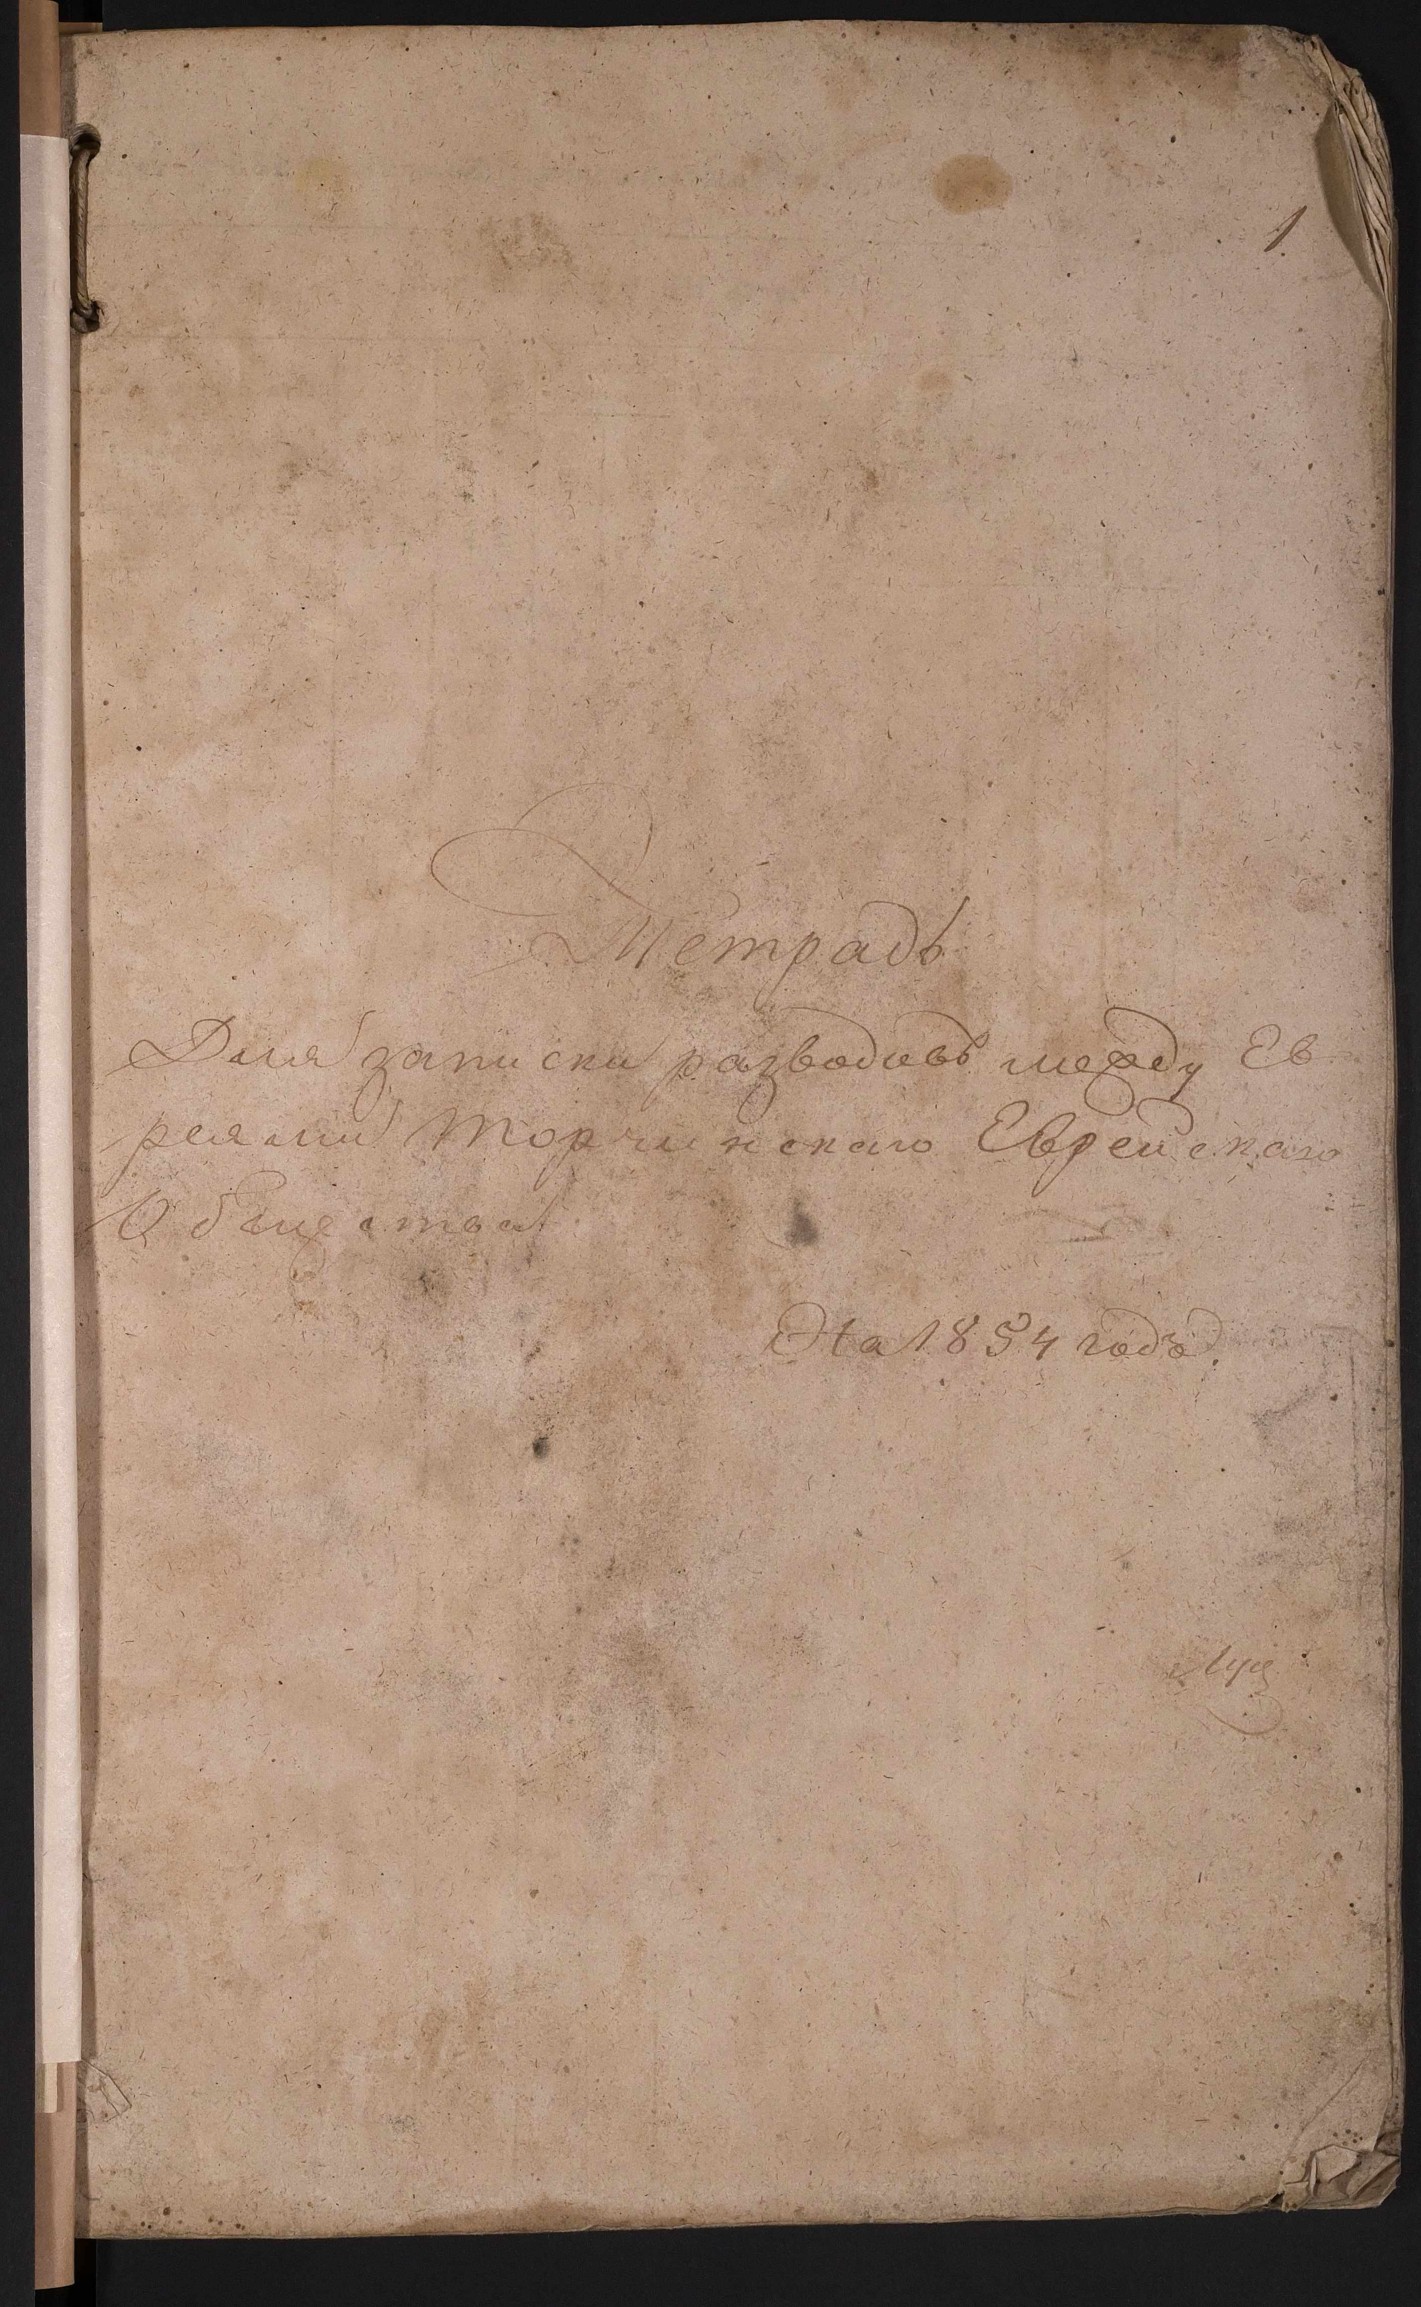 1
Тетрадь
Для записки разводовъ между Ев
реями Торчинскаго Еврейскаго
Общества
На 1854 годъ.
Луц